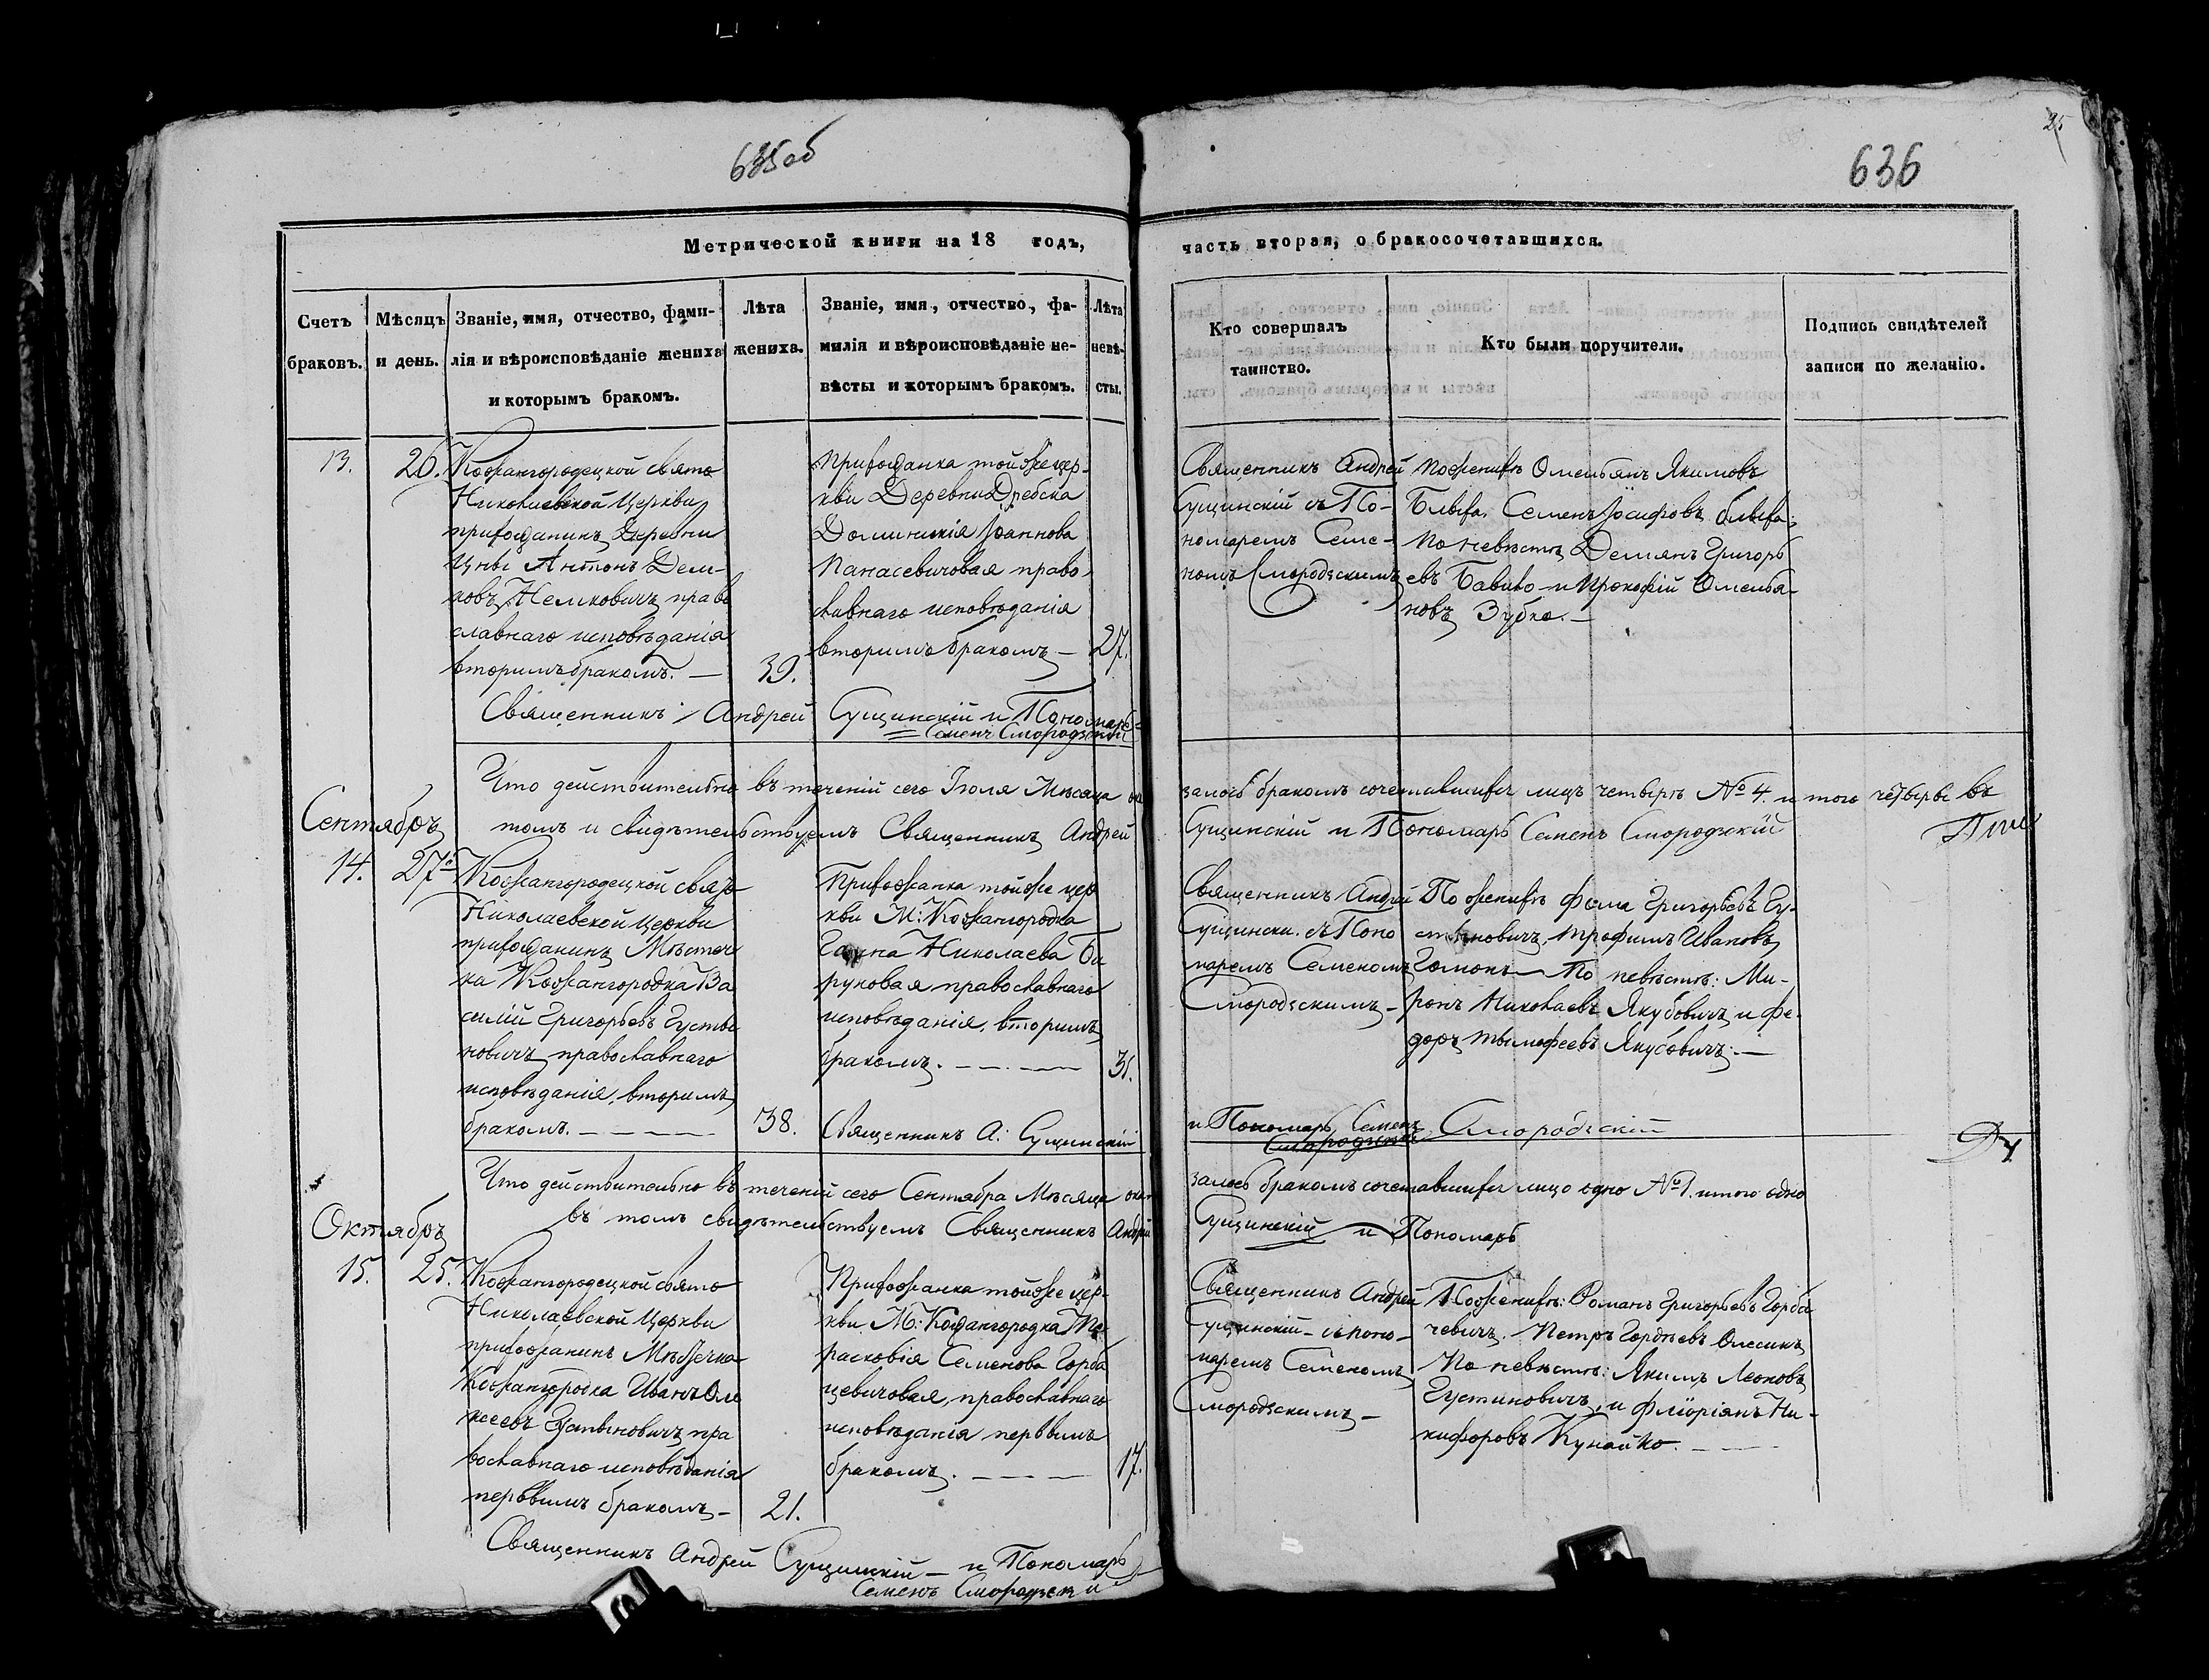 635об
25
636
Метрической книги на 18 годъ,
часть вторая, о бракосочетавшихся.
Счетъ браковъ.
Мѣсяцъ и день.
Званіе, имя, отчество, фами-
лія и вѣроисповѣданіе жениха
и которымъ бракомъ.
Лѣта
жениха.
Званіе, имя, отчество, фа-
милія и вѣроисповѣданіе не-
вѣсты и которымъ бракомъ.
Лѣта
невѣ-
сты.
Кто совершалъ
таинство.
Кто были поручители.
Подпись свидѣтелей
записи по желанію.
13.
26.
Кожангородецкой свято
Николаевской Церкви
прихожанинъ Деревни
Цны Антонъ Дем-
ковъ Немковичъ право
славнаго исповѣданія
вторимъ бракомъ. —
39.
Прихожанка тойже цер-
кви Деревни Дребска
Доминикія Іоаннова
Панасевичовая право-
славнаго исповѣданія
вторимъ бракомъ —
27.
Священникъ Андрей
Сущинскій съ По-
номаремъ Семе-
номъ Смородскимъ
По женихѣ Омельянъ Якимовъ
Бльха, Семенъ Іосифовъ бльха;
По невѣстѣ Демянъ Григорь
евъ Бавико и Прокофій Омелья-
новъ Зубко. —
Священникъ Андрей Сущинскій и Пономарь
Семенъ Смородзскій
Что действительно въ теченіи сего Іюля Мѣсяца ока
залось бракомъ сочетавшихся лицъ четырѣ № 4. итого четырѣ въ
томъ и свидѣтельствуемъ Священникъ Андрей
Сущинскій и Пономарь Семенъ Смородзскій
Сентябрь
14.
27го
Кожангородецкой свято
Николаевской Церкви
прихожанинъ Мѣстеч
ка Кожангородка Ва
силій Григорьевъ Густы
новичъ православнаго
исповѣданія, вторимъ
бракомъ. — — — —
38.
Прихожанка тойже цер
кви М: Кожангородка
Ганна Николаева Ба
руновая православнаго
исповѣданія, вторимъ
бракомъ. — — —
31.
Священникъ Андрей
Сущински. съ Поно
маремъ Семеномъ
Смородзскимъ —
По женихѣ Фома Григорьевъ Гу-
стыновичъ, Трофимъ Ивановъ
Гомонъ — По невѣстѣ: Ми-
ронъ Николаевъ Якубовичъ и Фе-
доръ Тымофеевъ Якубовичъ: —
Священникъ А: Сущинскій
и Пономарь Семенъ Смородзскій
Что действительно въ теченіи сего Сентября Мѣсяца ока
залось бракомъ сочетавшихся лицо одно № 1. итого одно
въ томъ свидѣтельствуемъ Священникъ Андрей
Сущинскій и Пономарь
Октябрь
15.
25.
Кожангородецкой свято
Николаевской Церкви
прихожанинъ Мѣстечка
Кожангородка Иванъ Оле
ксеевъ пра
вославнаго исповѣданія
первымъ бракомъ —
21.
Прихожанка тойже цер-
кви М: Кожангородка Па
расковія Семенова Горба
цевичовая, православнаго
исповѣданія первымъ
бракомъ. — — —
17.
Священникъ Андрей
Сущинскій — съ поно-
маремъ Семеномъ
Смородзскимъ —
По женихѣ: Романъ Григорьевъ Горба
чевичъ, Петръ Гордѣевъ Олесикъ
По невѣстѣ: Якимъ Леоновъ
Густиновичъ, и Флоріянъ Ни-
кифоровъ Кунайко. — —
Священникъ Андрей Сущинскій — и Пономарь
Семенъ Смородзскій